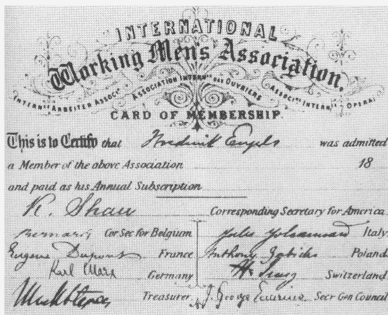 INTERNATIONAL
Working Men's Association.
INTERNATLE ARBEITER ASSOCN ASSOCIATION INTERNLE DES OUVRIERS ASSOCNE INTERNLE OPERAI
CARD OF MEMBERSHIP.
This is to Certify that Frederick Engels was admitted
a Member of the above Association 18
and paid as his Annual Subscription
R. Shaw Corresponding Secretary for America
Bernard Cor Sec for Belgium Jules Johannard Italy
Eugene Dupont France Anthony Zabicki Poland
Karl Marx Germany H. Jung Switzerland
Treasurer J. George Eccarius Secr Gen Council